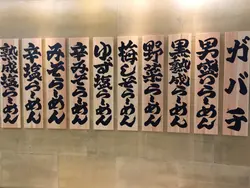 男盛らーめん
黒熟成らーめん
野菜らーめん
梅しそらーめん
ゆず塩らーめん
辛みそらーめん
みそらーめん
辛塩らーめん
熟成塩らーめん